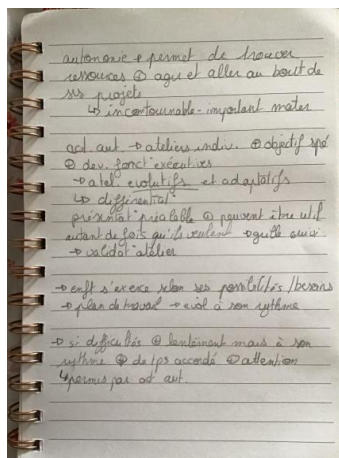 autonomie → permet de trouver
ressources ⊕ agir et aller au bout de
ses projets
↳ incontournable - important mater
act. aut. → ateliers indiv. ⊕ objectif spé
⊕ dev. fonct° exécutives
→ atel. évolutifs et adaptatifs
↳ différentiat°
présentat° préalable ⊕ peuvent être util
autant de fois qu'ils veulent → grille suivi
→ validat° atelier
→ enft s'exerce selon ses possibilités / besoins
→ plan de travail → évol à son rythme
→ si difficultés ⊕ lentement mais à son
rythme ⊕ de tps accordé ⊕ attention
↳ permis par act aut.